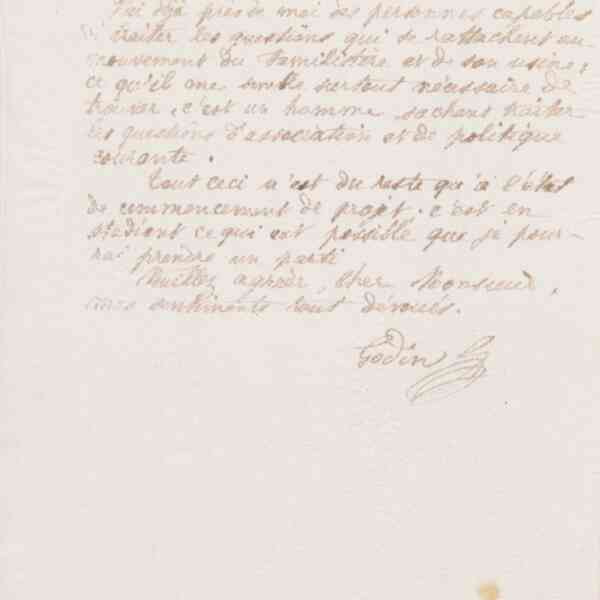 J'ai déjà près de moi des personnes capables
traiter les questions qui se rattachent au
mouvement du familistère et de son usine;
ce qu'il me semble surtout nécessaire de
trouver, c'est un homme sachant traiter
les questions d'association et de politique
courante.
Tout ceci n'est du reste qu'à l'état
de commencement de projet. c'est en
étudiant ce qui est possible que je pour-
rai prendre un parti
Veuillez agréer, Cher Monsieur,
mes sentiments tout dévoués.
Godin